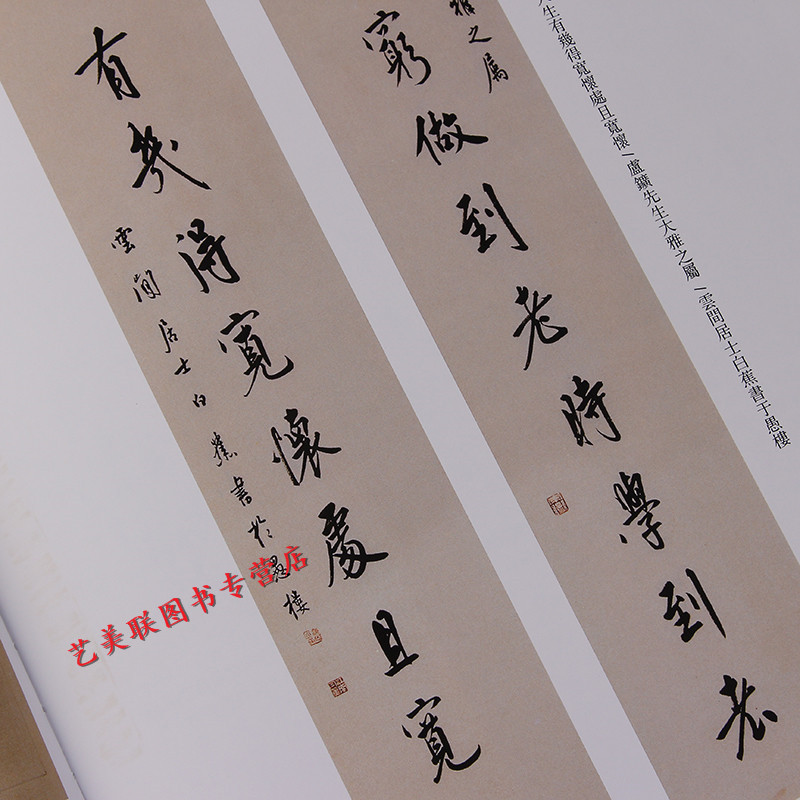 生有幾得寬懷處且寬懷 / 盧鑛先生大雅之屬 / 雲間居士白蕉書于愚樓
雅之屬
窮做到老時學到老
有幾得寬懷處且寬
雲間居士白蕉書於愚樓
艺美联图书专营店